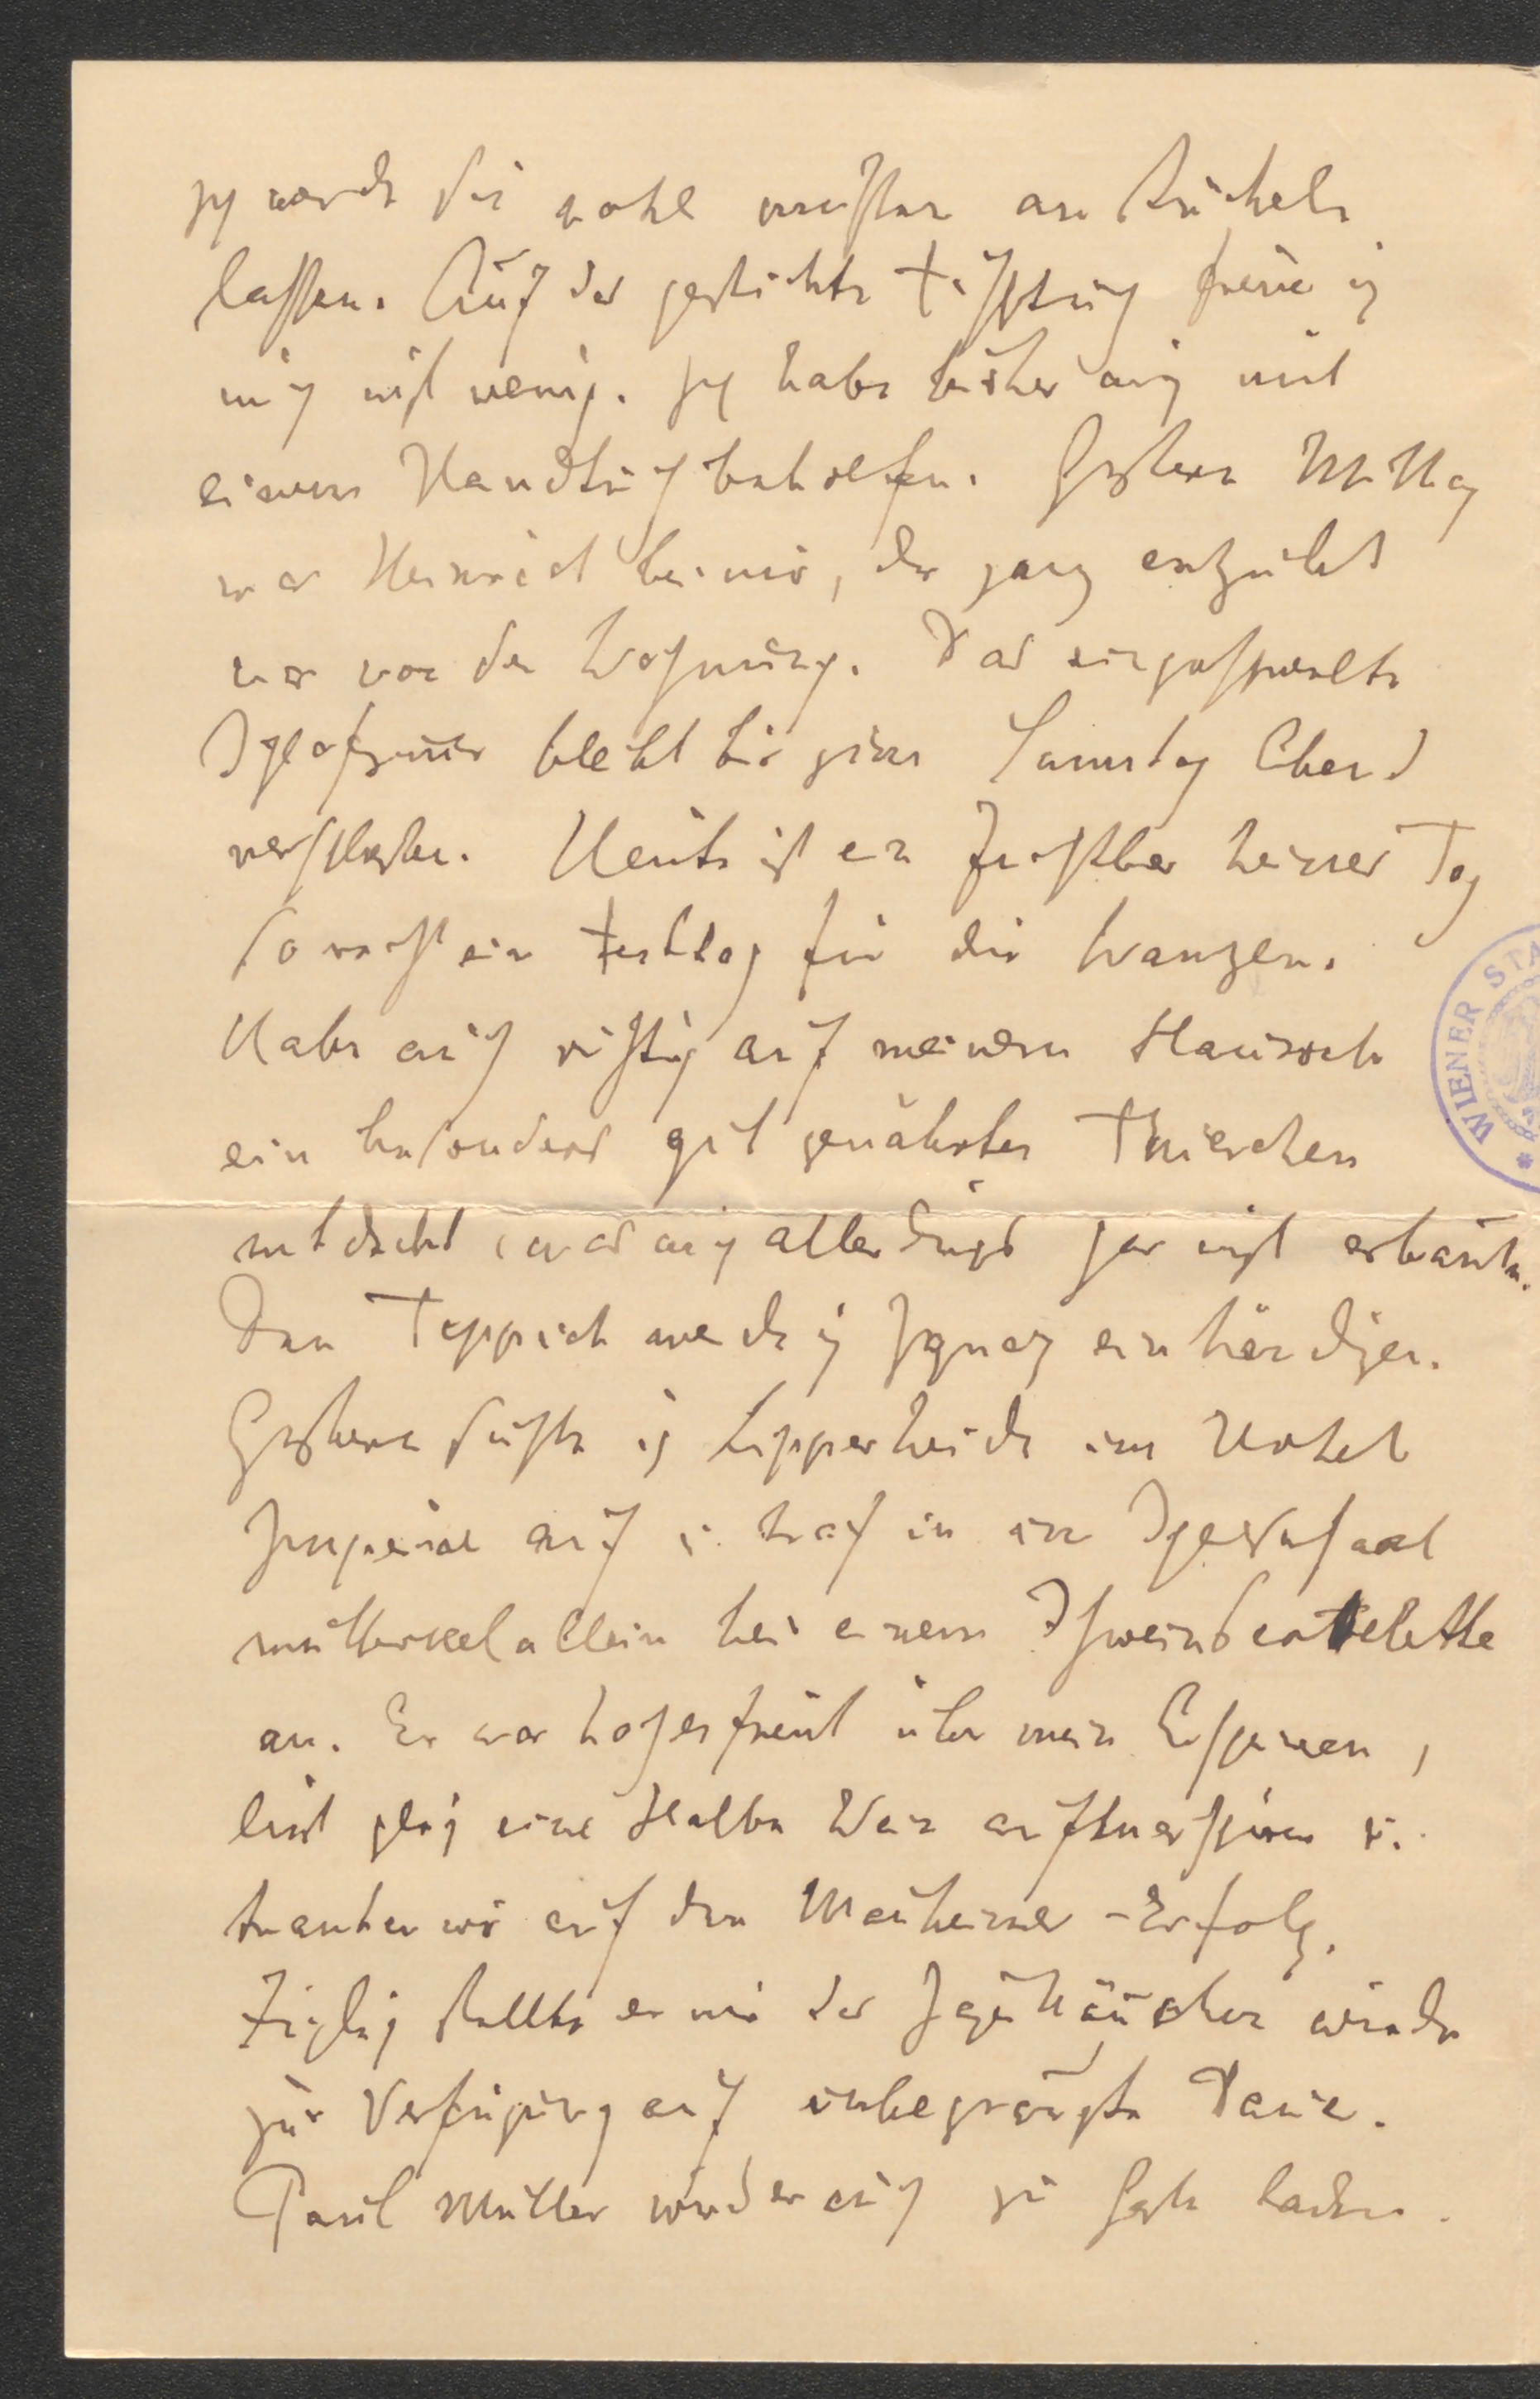 Ich werde sie wohl meistern an Stücheln
lassen. Auf das gestickte Tischtuch freue ich
mich nicht wenig. Ich habe bisher mich mit
einem Handtuch beholfen. Gestern Mittag
war Heinrich bei mir, der ganz entzückt
war von der Wohnung. Das eingeschweelte
Schlafzimmer bleibt bis zum Samstag Abend
verschlossen. Heute ist ein furchtbar heisser Tag
so recht ein Festtag für die Wanzen.
Habe auch richtig auf meinem Hausrock
ein besonders gut genährtes Thierchen
entdeckt, was mich allerdings gar nicht erbaute.
Den Teppich werde ich Ignaz einhändigen.
Gestern suchte ich Lipperheide im Hotel
Imperial auf u. traf ihn im Speisesaal
mutterseelallein bei einem Schweinscotelette
an. Er war hocherfreut über mein Erscheinen,
liess gleich eine Halbe Wein aufmarschiren u.
tranken wir auf den Manheimer-Erfolg.
Freilich stellte er mir das Jagdhäuschen wieder
zur Verfügung auf unbegränzte Dauer.
Paul Müller wird er auch zu Gaste laden.
WIENER STA